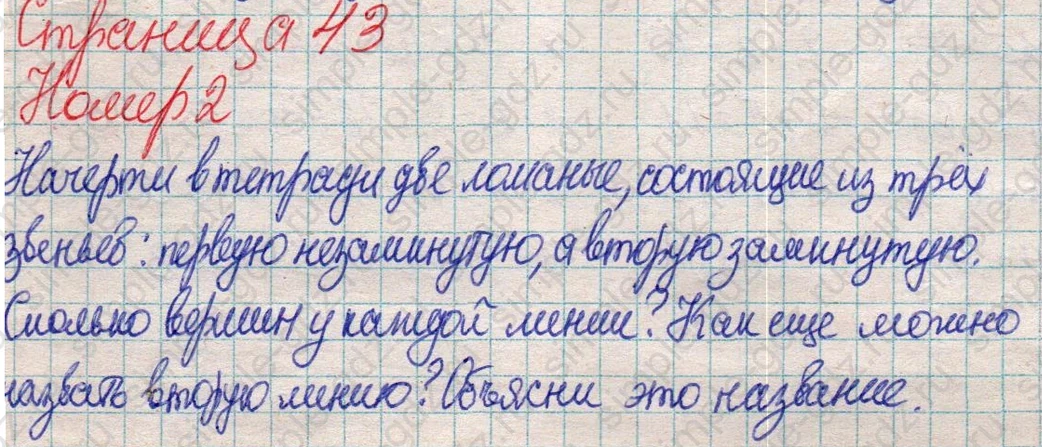 Страница 43
Номер 2
Начерти в тетради две ломаные, состоящие из трёх
звеньев: первую незамкнутую, а вторую замкнутую.
Сколько вершин у каждой линии? Как еще можно
назвать вторую линию? Объясни это название.